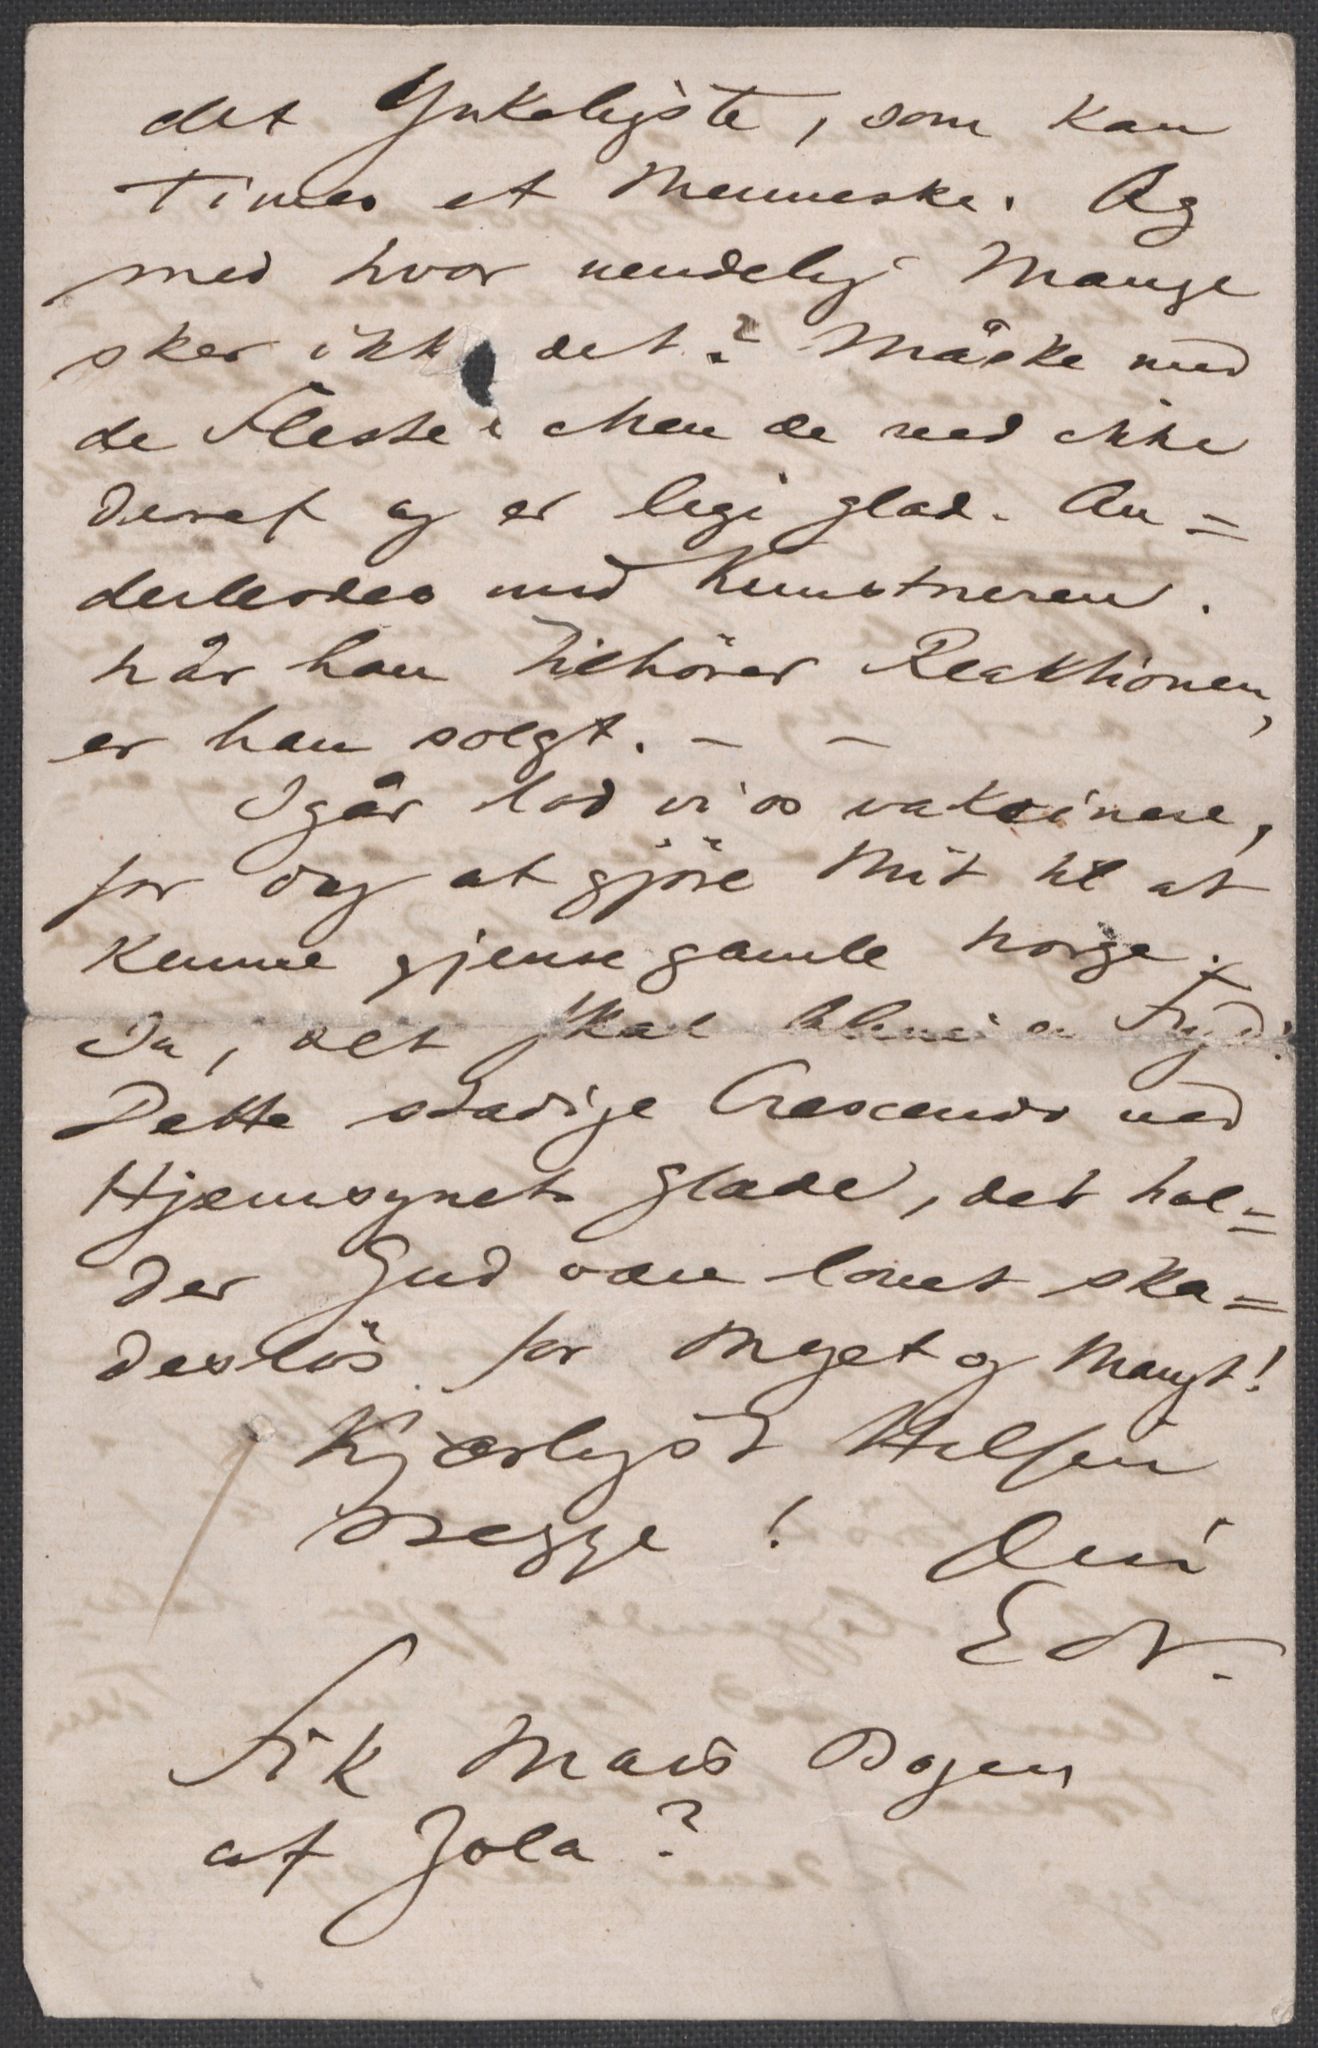 det Ynkeligste, som kan
times et Menneske. Og
med hvor uendelig Mange
sker ikke det? Måske med
de Fleste. Men de ved ikke
deraf og er lige glad. An=
derledes med Kunstneren.
Når han tilhører Reaktionen,
er han solgt. – –
Igår lod vi os vaksinere,
for dog at gjöre Mit til at
kunne gjense gamle Norge.
Ja, det skal blive en Fryd!
Dette stadige Crescendo ved
Hjemsynets Glæde, det hol=
der Gud være lovet ska=
deslös for Meget og Mangt!
Kjærligst Hilsen
Begge! Din
Edv.
Fik Maris Bogen
af Zola?